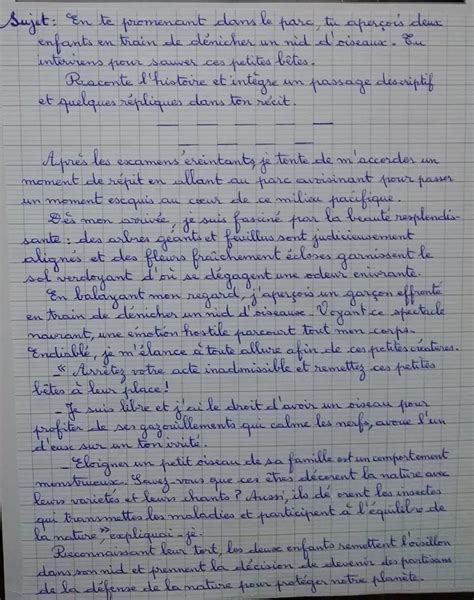 Sujet: En te promenant dans le parc, tu aperçois deux
enfants en train de dénicher un nid d'oiseaux. Tu
interviens pour sauver ces petites bêtes.
Raconte l'histoire et intègre un passage descriptif
et quelques répliques dans ton récit.
Après les examens éreintants, je tente de m'accorder un
moment de répit en allant au parc avoisinant pour passer
un moment exquis au cœur de ce milieu pacifique.
Dès mon arrivée, je suis fasciné par la beauté resplendis-
sante : des arbres géants et feuillus sont judicieusement
alignés et des fleurs fraîchement écloses garnissent le
sol verdoyant d'où se dégagent une odeur enivrante.
En balayant mon regard, j'aperçois un garçon effronté
en train de dénicher un nid d'oiseaux. Voyant ce spectacle
navrant, une émotion hostile parcourt tout mon corps.
Endiablé, je m'élance à toute allure afin de ces petites créatures.
_" Arrêtez votre acte inadmissible et remettez ces petites
bêtes à leur place !
_ Je suis libre et j'ai le droit d'avoir un oiseau pour
profiter de ses gazouillements qui calme les nerfs, avoue l'un
d'eux sur un ton irrité.
_ Eloigner un petit oiseau de sa famille est un comportement
monstrueux. Savez-vous que ces êtres décorent la nature avec
leurs varietés et leurs chants ? Aussi, ils dé orent les insectes
qui transmettes les maladies et participent à l'équilibre de
la nature,", expliquai-je.
Reconnaissant leur tort, les deux enfants remettent l'oisillon
dans son nid et prennent la décision de devenir des partisans
de la défense de la nature pour protéger notre planète.